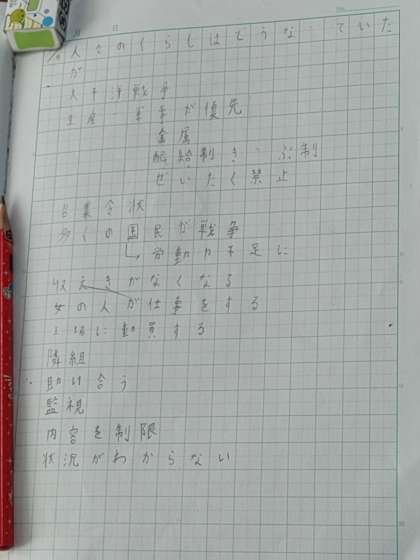 人々のくらしはどうなっていた
か
太平洋戦争
生産 軍事が優先
金属
配給制 きっぷ制
ぜいたく禁止
召集令状
多くの国民が戦争
→労動力不足に
収えきがなくなる
女の人が仕事をする
工場に動員する
隣組
助け合う
監視
内容を制限
状況がわからない